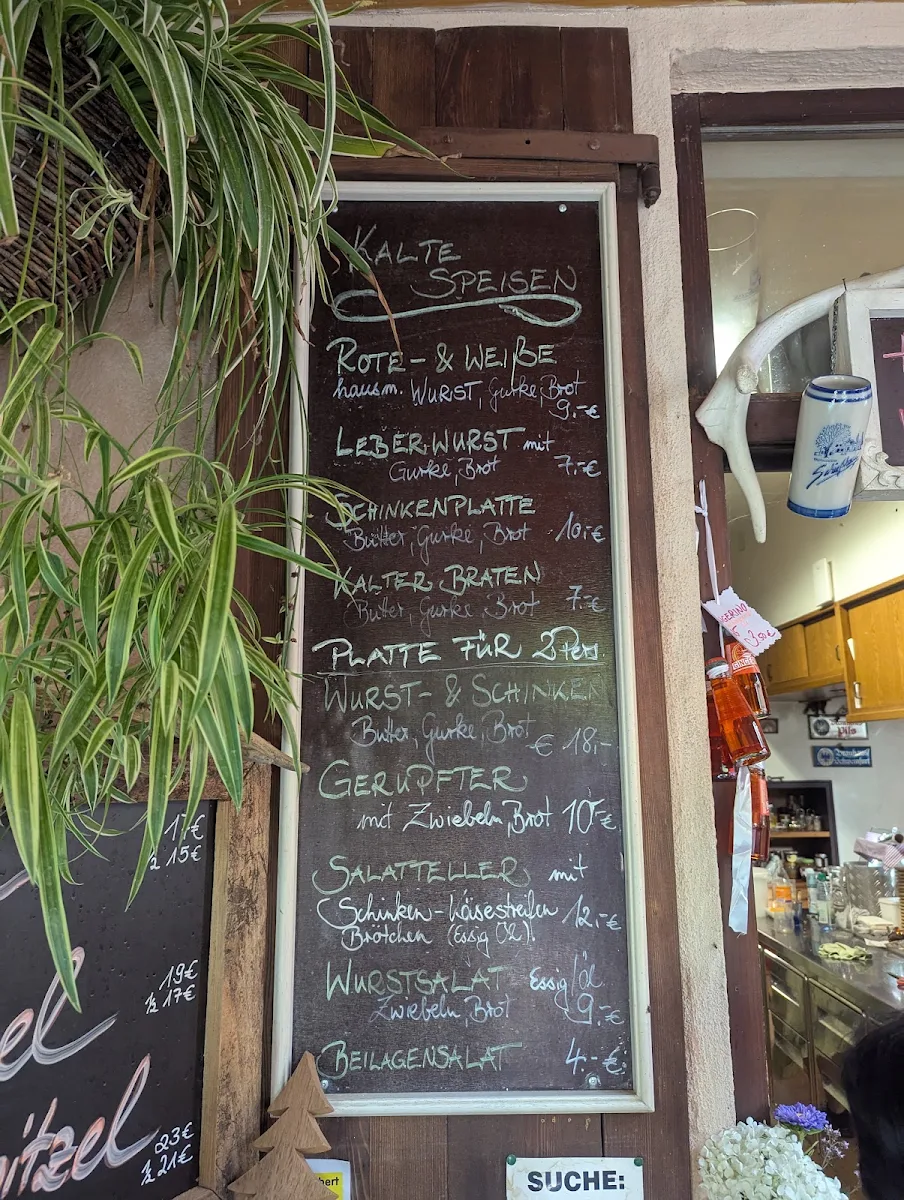 KALTE
SPEISEN
ROTE- & WEIßE
hausm. WURST, Gurke, Brot
9,-€
LEBERWURST mit
Gurke, Brot 7,-€
SCHINKENPLATTE
Butter, Gurke, Brot 10,-€
KALTER BRATEN
Butter, Gurke, Brot 7,-€
PLATTE FÜR 2 Pers.
WURST- & SCHINKEN
Butter, Gurke, Brot
€ 18,-
GERUPFTER
mit Zwiebeln, Brot 10,-€
SALATTELLER mit
Schinken-Käsestreifen 12,-€
Brötchen (Essig Öl).
WURSTSALAT Essig/Öl
Zwiebeln, Brot 9,-€
BEILAGENSALAT 4,-€
17€
½ 15€
19€
½ 17€
el
nitzel
23€
½ 21€
GERINO
3,50€
Pils
SUCHE: